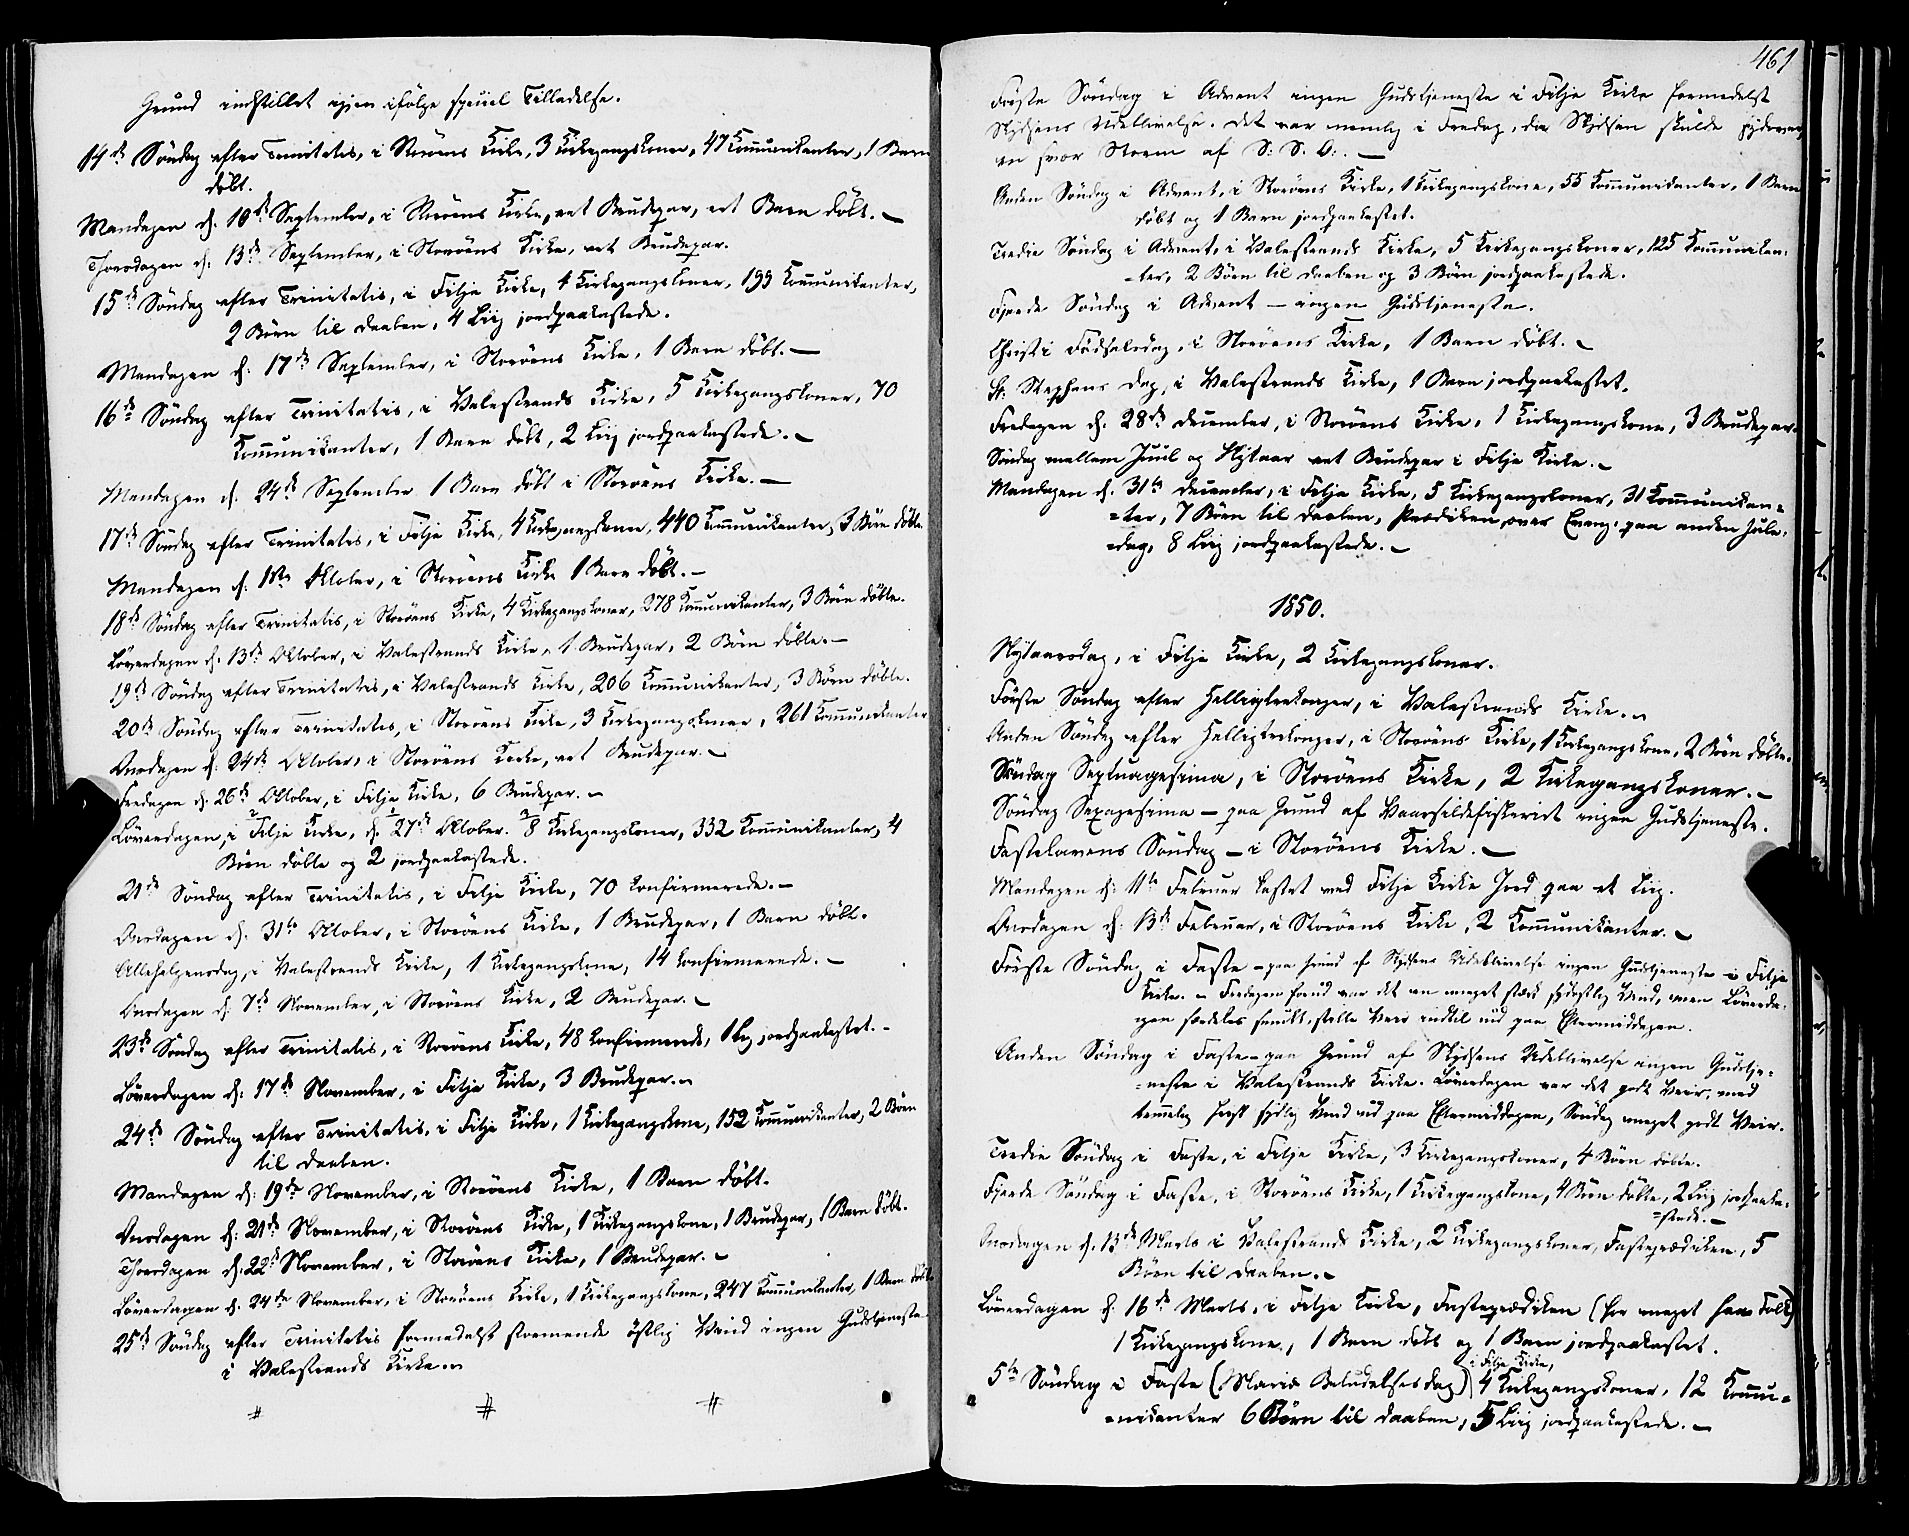 Grund indstillet igjen ifølge speciel Tilladelse.
14de Søndag efter Trinitatis, i Storöens Kirke, 3 Kirkegangskoner, 47 Kommunikanter, 1 Barn
döbt.
Mandagen d: 10de September, i Storöens Kirke, eet Brudepar, eet Barn döbt. –
Thorsdagen d: 13de September, i Storöens Kirke, eet Brudepar.
15de Søndag efter Trinitatis, i Fitje Kirke, 4 Kirkegangskoner, 199 Kommunikanter,
2 Börn til Daaben, 4 Liig jordpaakastede.
Mandagen d: 17de September, i Storöens Kirke, 1 Barn döbt. –
16de Søndag efter Trinitatis, i Valestrands Kirke, 5 Kirkegangskoner, 70
Kommunikanter, 1 Barn döbt, 2 Liig jordpaakastede. –
Mandagen d: 24de September 1 Barn döbt i Storöens Kirke. –
17de Søndag efter Trinitatis, i Fitje Kirke, 4 Kirkegangskoner, 440 Kommunikanter, 3 Börn döbte.
Mandagen d: 1ste Oktober, i Storöens Kirke 1 Barn döbt. –
18de Søndag efter Trinitatis, i Storöens Kirke, 4 Kirkegangskoner, 278 Kommunikanter, 3 Börn döbte.
Löverdagen d: 13de Oktober, i Valestrands Kirke, 1 Brudepar, 2 Börn döbte. –
19de Søndag efter Trinitatis, i Valestrands Kirke, 206 Kommunikanter, 3 Börn döbte.
20de Søndag efter Trinitatis, i Storöens Kirke, 3 Kirkegangskoner, 261 Kommunikanter
Onsdagen d: 24de Oktober, i Storöens Kirke, eet Brudepar. –
Fredagen d: 26de Oktober, i Fitje Kirke, 6 Brudepar. –
Löverdagen, i Fitje Kirke, d: 27de Oktober. 8 Kirkegangskoner, 332 Kommunikanter, 4
Börn döbte og 2 jordpaakastede.
21de Søndag efter Trinitatis, i Fitje Kirke, 70 Konfirmerede. –
Onsdagen d: 31te Oktober, i Storöens Kirke, 1 Brudepar, 1 Barn döbt.
Allehelgensdag, i Valestrands Kirke, 1 Kirkegangskone, 14 Konfirmerede. –
Onsdagen d: 7de November, i Storöens Kirke, 2 Brudepar. –
23de Søndag efter Trinitatis, i Storöens Kirke, 48 Konfirmerede, 1 Liig jordpaakastet. –
Löverdagen d: 17de November, i Fitje Kirke, 3 Brudepar. –
24de Søndag efter Trinitatis, i Fitje Kirke, 1 Kirkegangskone, 152 Kommunikanter, 2 Börn
til Daaben.
Mandagen d: 19de November, i Storöens Kirke, 1 Barn döbt.
Onsdagen d: 21de November, i Storöens Kirke, 1 Kirkegangskone, 1 Brudepar, 1 Barn döbt.
Thorsdagen d: 22de November, i Storöens Kirke, 1 Brudepar. –
Löverdagen d: 24de November, i Storöens Kirke, 1 Kirkegangskone, 247 Kommunikanter, 1 Barn döbt.
25de Søndag efter Trinitatis formedelst stormende östlig Vind ingen Gudstjeneste
i Valestrands Kirke. –
# # #
461
Förste Söndag i Advent ingen Gudstjeneste i Fitje Kirke formedelst
Skydsens Udeblivelse. Det var nemlig i Fredag, da Skydsen skulde
en svær Storm af S: S. O: –
Anden Söndag i Advent, i Storöens Kirke, 1 Kirkegangskone, 55 Kommunikanter, 1 Barn
döbt og 1 Barn jordpaakastet.
Tredie Söndag i Advent, i Valestrands Kirke, 5 Kirkegangskoner, 125 Kommunikan=
=ter, 2 Börn til Daaben og 3 Börn jordpaakastede.
Fjerde Söndag i Advent – ingen Gudstjeneste.
Christi Födselsdag, i Storöens Kirke, 1 Barn döbt. –
St: Stephens Dag, i Valestrands Kirke, 1 Barn jordpaakastet.
Fredagen d: 28de December, i Storöens Kirke, 1 Kirkegangskone, 3 Brudepar.
Söndag mellem Juul og Nytaar eet Brudepar i Fitje Kirke. –
Mandagen d: 31te December, i Fitje Kirke, 5 Kirkegangskoner, 31 Kommunikan=
=ter, 7 Börn til Daaben, Prædiken over Evang: paa anden Jule=
=dag, 8 Liig jordpaakastede. –
1850.
Nytaarsdag, i Fitje Kirke, 2 Kirkegangskoner.
Förste Søndag efter Helligtrekonger, i Valestrands Kirke. –
Anden Söndag efter Helligtrekonger, i Storöens Kirke, 1 Kirkegangskone, 2 Börn döbte.
Söndag Septuagesima, i Storöens Kirke, 2 Kirkegangskoner. –
Söndag Sexagesima – paa Grund af Vaarsildefiskeriet ingen Gudstjeneste.
Fastelavens Söndag – i Storöens Kirke. –
Mandagen d: 11te Februar kastet ved Fitje Kirke Jord paa et Liig.
Onsdagen d: 13de Februar, i Storöens Kirke, 2 Kommunikanter. –
Förste Söndag i Faste – paa Grund af Skydsens Udeblivelse ingen Gudstjeneste i Fitje
Kirke. – Fredagen forud var det en meget stærk sydostlig Vind, men Löverda=
gen særdeles smukt, stille Veir indtil ud paa Eftermiddagen.
Anden Söndag i Faste – paa Grund af Skydsens Udeblivelse ingen Gudstje=
=neste i Valestrands Kirke. Löverdagen var det godt Veir, med
temmelig frisk sydlig Vind ud paa Eftermiddagen, Söndag meget godt Veir.
Tredie Söndag i Faste, i Fitje Kirke, 3 Kirkegangskoner, 4 Börn döbte.
Fjerde Söndag i Faste, i Storöens Kirke, 1 Kirkegangskone, 4 Börn döbte, 2 Liig jordpaaka=
=stede. –
Onsdagen d. 13de Marts i Valestrands Kirke, 2 Kirkegangskoner, Fasteprædiken, 5
Börn til Daaben. –
Löverdagen d: 16de Marts, i Fitje Kirke, Fasteprædiken (for meget faa Folk)
1 Kirkegangskone, 1 Barn döbt og 1 Barn jordpaakastet.
i Fitje Kirke,
5te Söndag i Faste (Mariæ Bebudelsesdag) 4 Kirkegangskoner, 12 Kommu=
=nikanter 6 Börn til Daaben, 5 Liig jordpaakastede. –